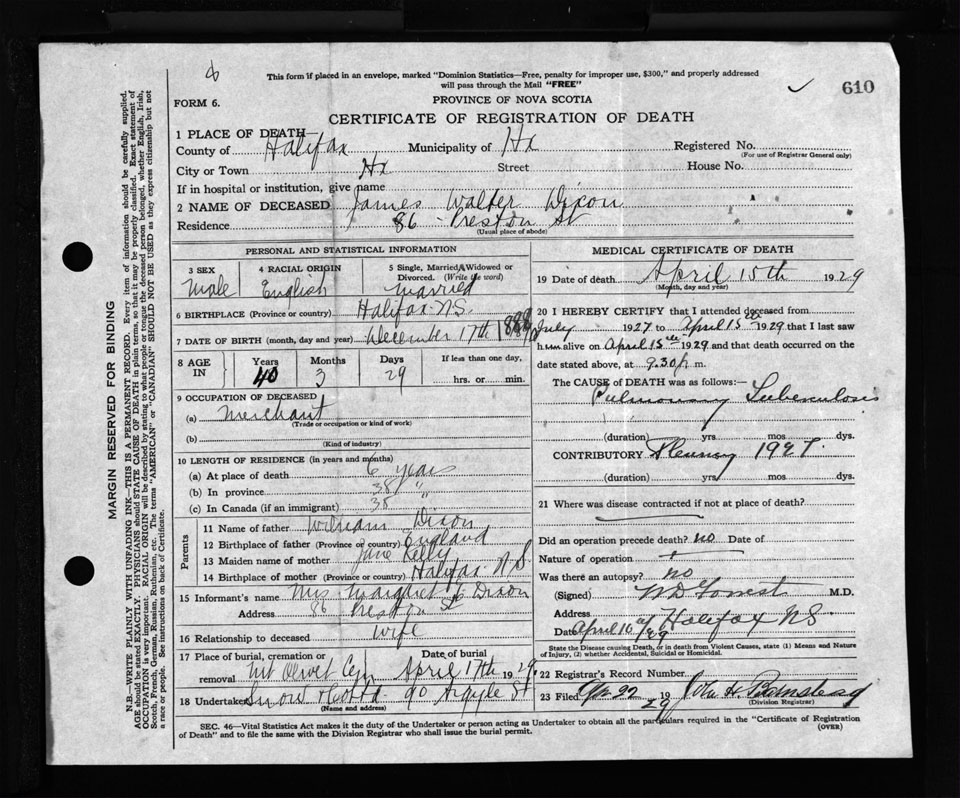 This form if placed in an envelope, marked "Dominion Statistics—Free, penalty for improper use, $300," and properly addressed
will pass through the Mail "FREE"
610
FORM 6.
PROVINCE OF NOVA SCOTIA
CERTIFICATE OF REGISTRATION OF DEATH
1 PLACE OF DEATH—
County of Halifax Municipality of Hx Registered No.
(For use of Registrar General only)
City or Town Hx Street House No.
If in hospital or institution, give name
2 NAME OF DECEASED James Walter Dixon
Residence 86 Preston St
(Usual place of abode)
PERSONAL AND STATISTICAL INFORMATION
3 SEX 4 RACIAL ORIGIN 5 Single, Married, Widowed or
Divorced. (Write the word)
Male English Married
6 BIRTHPLACE (Province or country) Halifax N.S.
7 DATE OF BIRTH (month, day and year) December 17th 1888
8 AGE IN Years Months Days If less than one day,
40 3 29 hrs. or min.
9 OCCUPATION OF DECEASED
(a) Merchant
(Trade or occupation or kind of work)
(b)
(Kind of industry)
10 LENGTH OF RESIDENCE (in years and months)
(a) At place of death 6 years
(b) In province 38 "
(c) In Canada (if an immigrant) 38
Parents
11 Name of father William Dixon
12 Birthplace of father (Province or country) England
13 Maiden name of mother Jane Kelly
14 Birthplace of mother (Province or country) Halifax N.S.
15 Informant's name Mrs Margaret Dixon
Address 86 Preston St
16 Relationship to deceased wife
17 Place of burial, cremation or Date of burial
removal Mt Olivet Cem April 17th 1929
18 Undertaker Snow & Co Ltd 90 Argyle St
(Name and address)
MEDICAL CERTIFICATE OF DEATH
19 Date of death April 15th 1929
(Month, day and year)
20 I HEREBY CERTIFY that I attended deceased from
July 1927 to April 15 1929 that I last saw
him alive on April 15th 1929 and that death occurred on the
date stated above, at 9.30 p m.
The CAUSE of DEATH was as follows:—
Pulmonary Tuberculosis
(duration) yrs mos dys.
CONTRIBUTORY Pleurisy 1927.
(duration) yrs mos dys.
21 Where was disease contracted if not at place of death?
Did an operation precede death? no Date of
Nature of operation
Was there an autopsy? no
(Signed) M.D.
Address Halifax NS
Date April 16
State the Disease causing Death, or in death from Violent Causes, state (1) Means and Nature
of Injury, (2) whether Accidental, Suicidal or Homicidal.
22 Registrar's Record Number
23 Filed Apr 22 1929 John H. Barnstead
(Division Registrar)
SEC. 46—Vital Statistics Act makes it the duty of the Undertaker or person acting as Undertaker to obtain all the particulars required in the "Certificate of Registration
of Death" and to file the same with the Division Registrar who shall issue the burial permit.
(OVER)
MARGIN RESERVED FOR BINDING
N.B.—WRITE PLAINLY WITH UNFADING INK—THIS IS A PERMANENT RECORD. Every item of information should be carefully supplied.
AGE should be stated EXACTLY. PHYSICIANS should STATE CAUSE OF DEATH in plain terms, so that it may be properly classified. Exact statement of
OCCUPATION is very important. RACIAL ORIGIN will be described by stating to what people or tongue the deceased person belonged, whether English, Irish,
Scotch, French, German, Russian, Ruthenian, etc. The terms "AMERICAN" or "CANADIAN" SHOULD NOT BE USED as they express citizenship but not
a race or people. See instructions on back of Certificate.